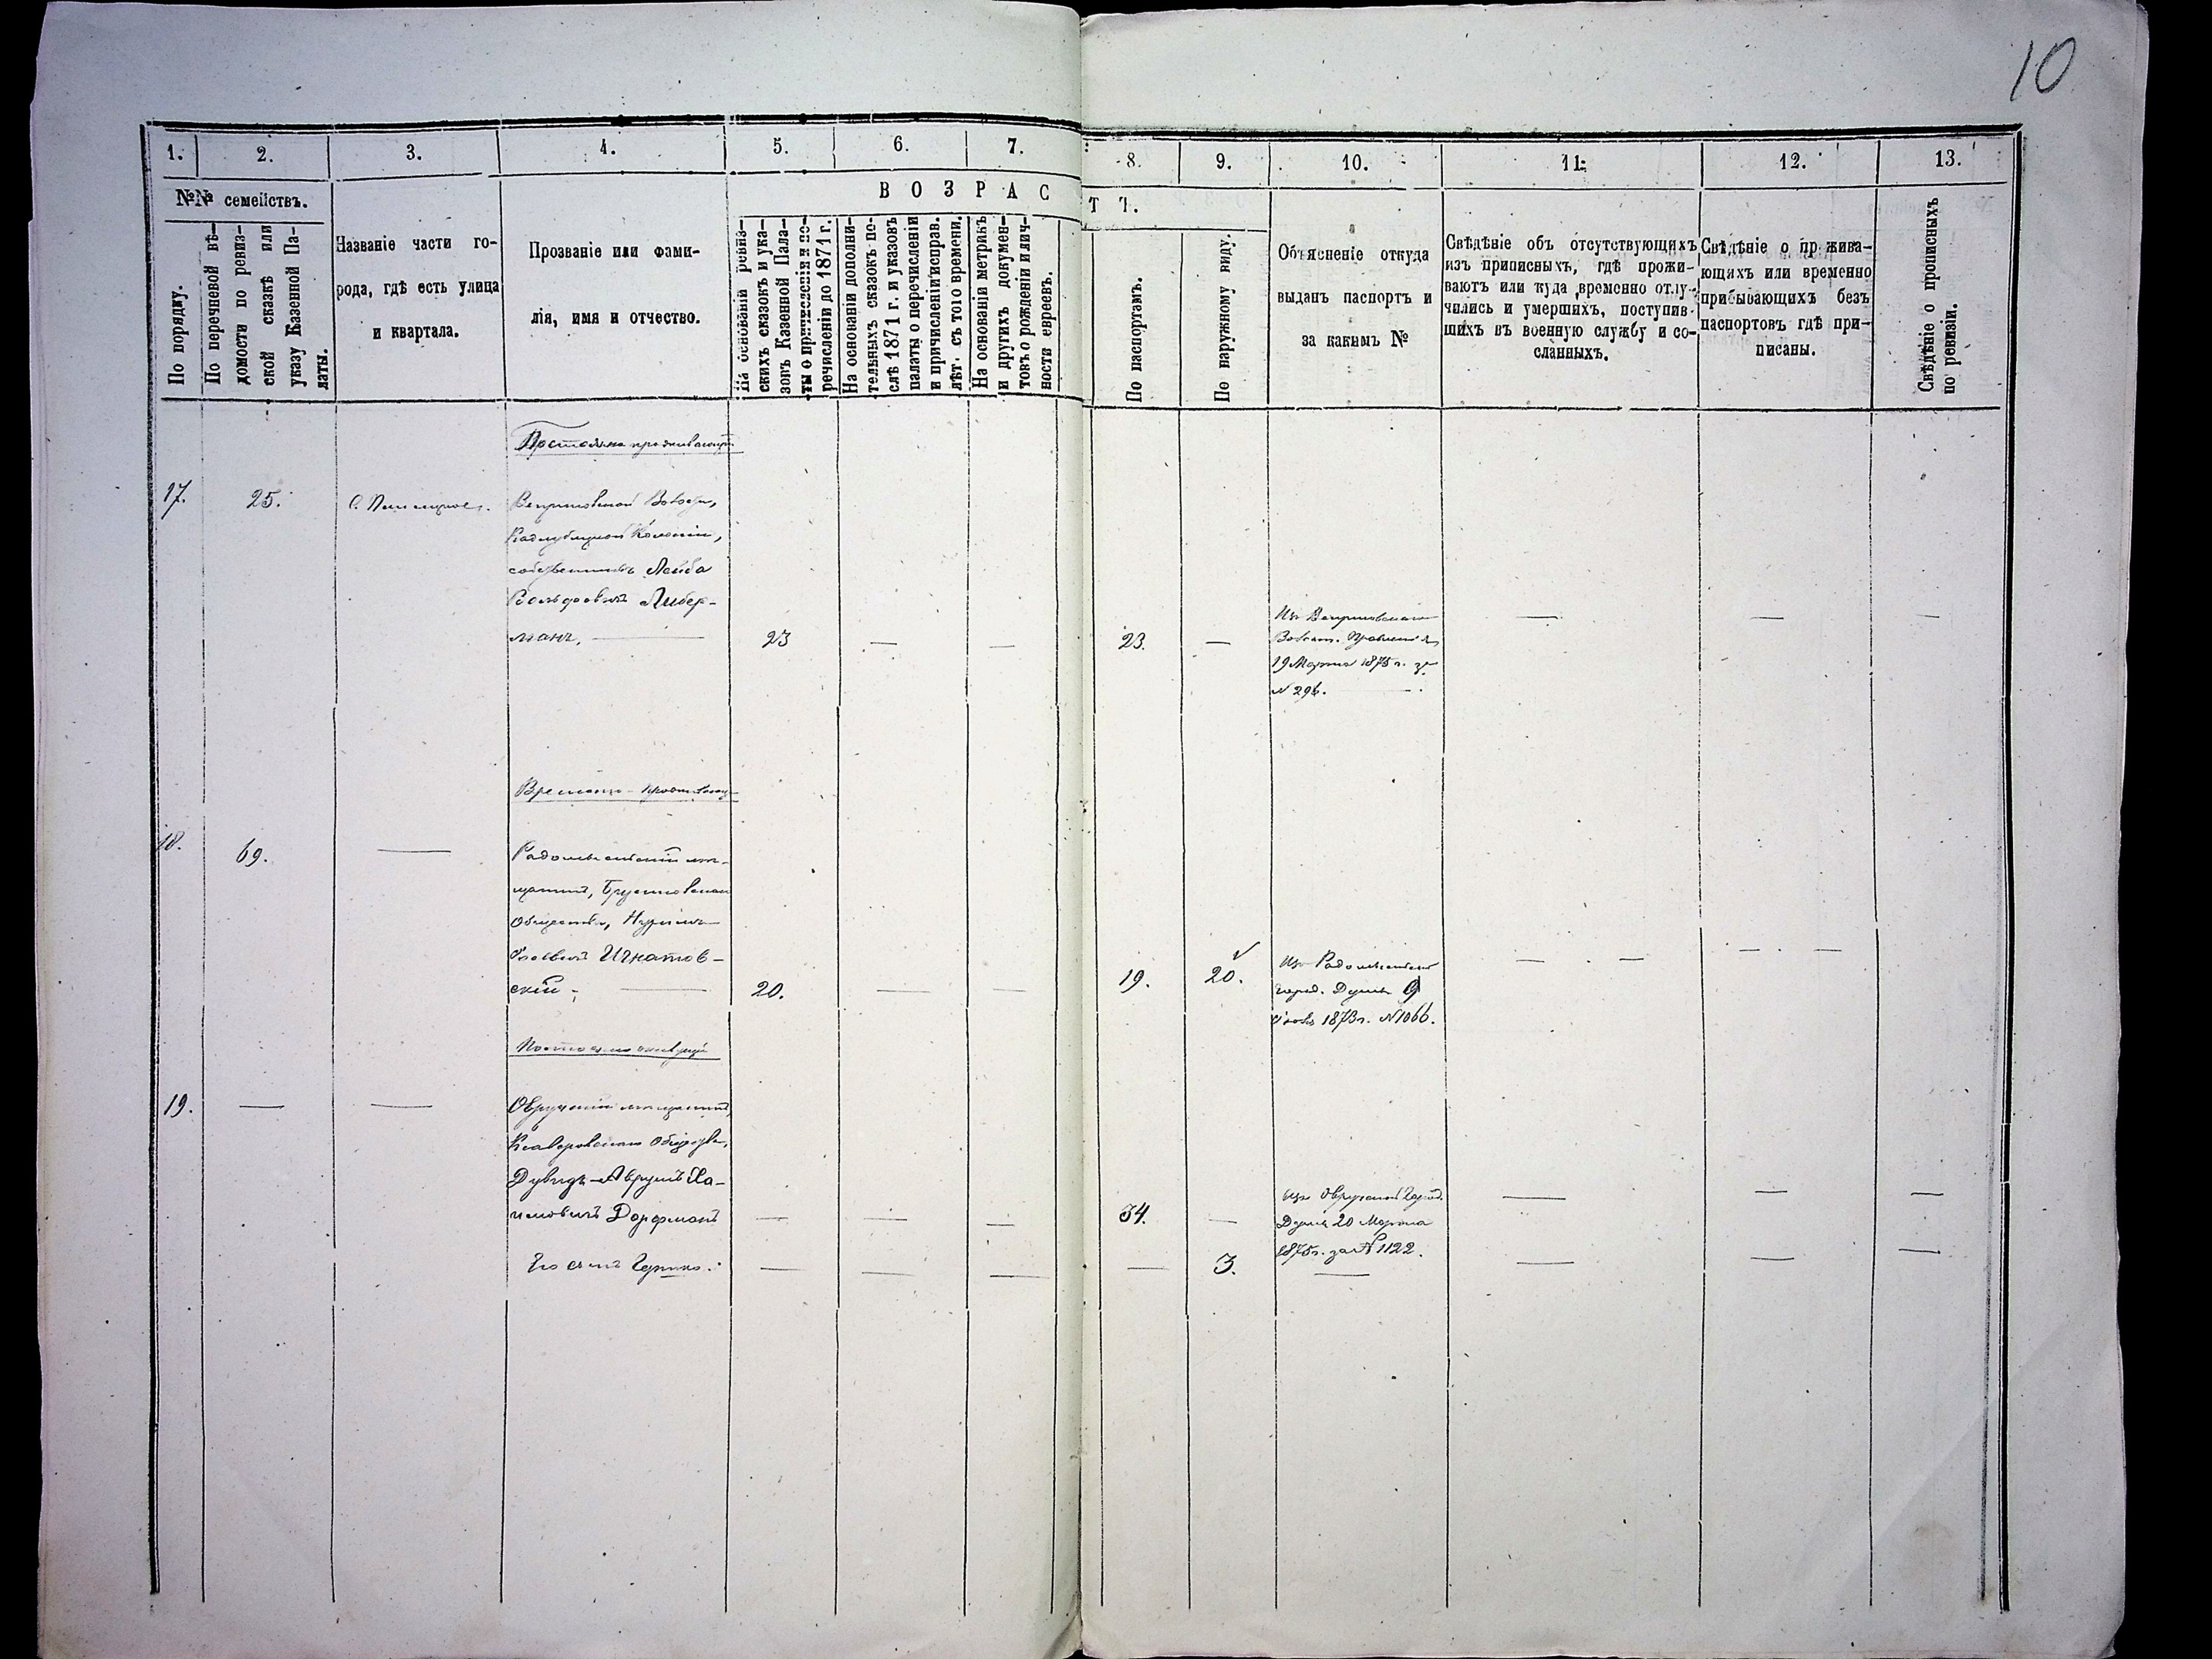 10
1. 2. 3. 4. 5. 6. 7. 8. 9. 10. 11. 12. 13.
№№ семействъ.
В О З Р А С Т Ъ.
По порядку.
По перечневой вѣ-
домости по ревиз-
ской сказкѣ или
указу Казенной Па-
латы.
Названіе части го-
рода, гдѣ есть улица
и квартала.
Прозваніе или фами-
лія, имя и отчество.
На основаніи ревиз-
скихъ сказокъ и ука-
зовъ Казенной Пала-
ты о причисленіи и пе-
речисленіи до 1871 г.
На основаніи дополни-
тельныхъ сказокъ по-
слѣ 1871 г. и указовъ
палаты о перечисленіи
и причисленіи исправ.
лѣт. съ того времени.
На основаніи метрикъ
и другихъ докумен-
товъ о рожденіи и лич-
ности евреевъ.
По паспортамъ.
По наружному виду.
Объясненіе откуда
выданъ паспортъ и
за какимъ №
Свѣдѣніе объ отсутствующихъ
изъ приписныхъ, гдѣ прожи-
ваютъ или куда временно отлу-
чились и умершихъ, поступив-
шихъ въ военную службу и со-
сланныхъ.
Свѣдѣніе о прожива-
ющихъ или временно
прибывающихъ безъ
паспортовъ гдѣ при-
писаны.
Свѣдѣніе о прописныхъ
по ревизіи.
Постоянно проживающ.
17. 25. С.
Волости,
Колоніи,
собственникъ Лейба
Вольфовичъ Либер-
манъ. — 23 — — 23. — — — —
Изъ
Волост. Правленія
19 Марта 1875 г. за
N 296.
Временно-проживающ.
18. 69. —
Радомысльскій мѣ-
щанинъ, Брусиловскаго
Общества,
Игнатов-
скій — 20. — — 19. 20. — — — —
Изъ Радомысльской
город. Думы 9
1873 г. N 1066.
Постоянно
19. — —
Овручскій мѣщанинъ,
Общества,
Дувидъ-Аврумъ Ха-
имовичъ Дорфманъ — — — 34. — — — —
Изъ Овручской Город.
Думы 20 Марта
1875 г. за N 1122.
Его сынъ — — — — 3. — — — —